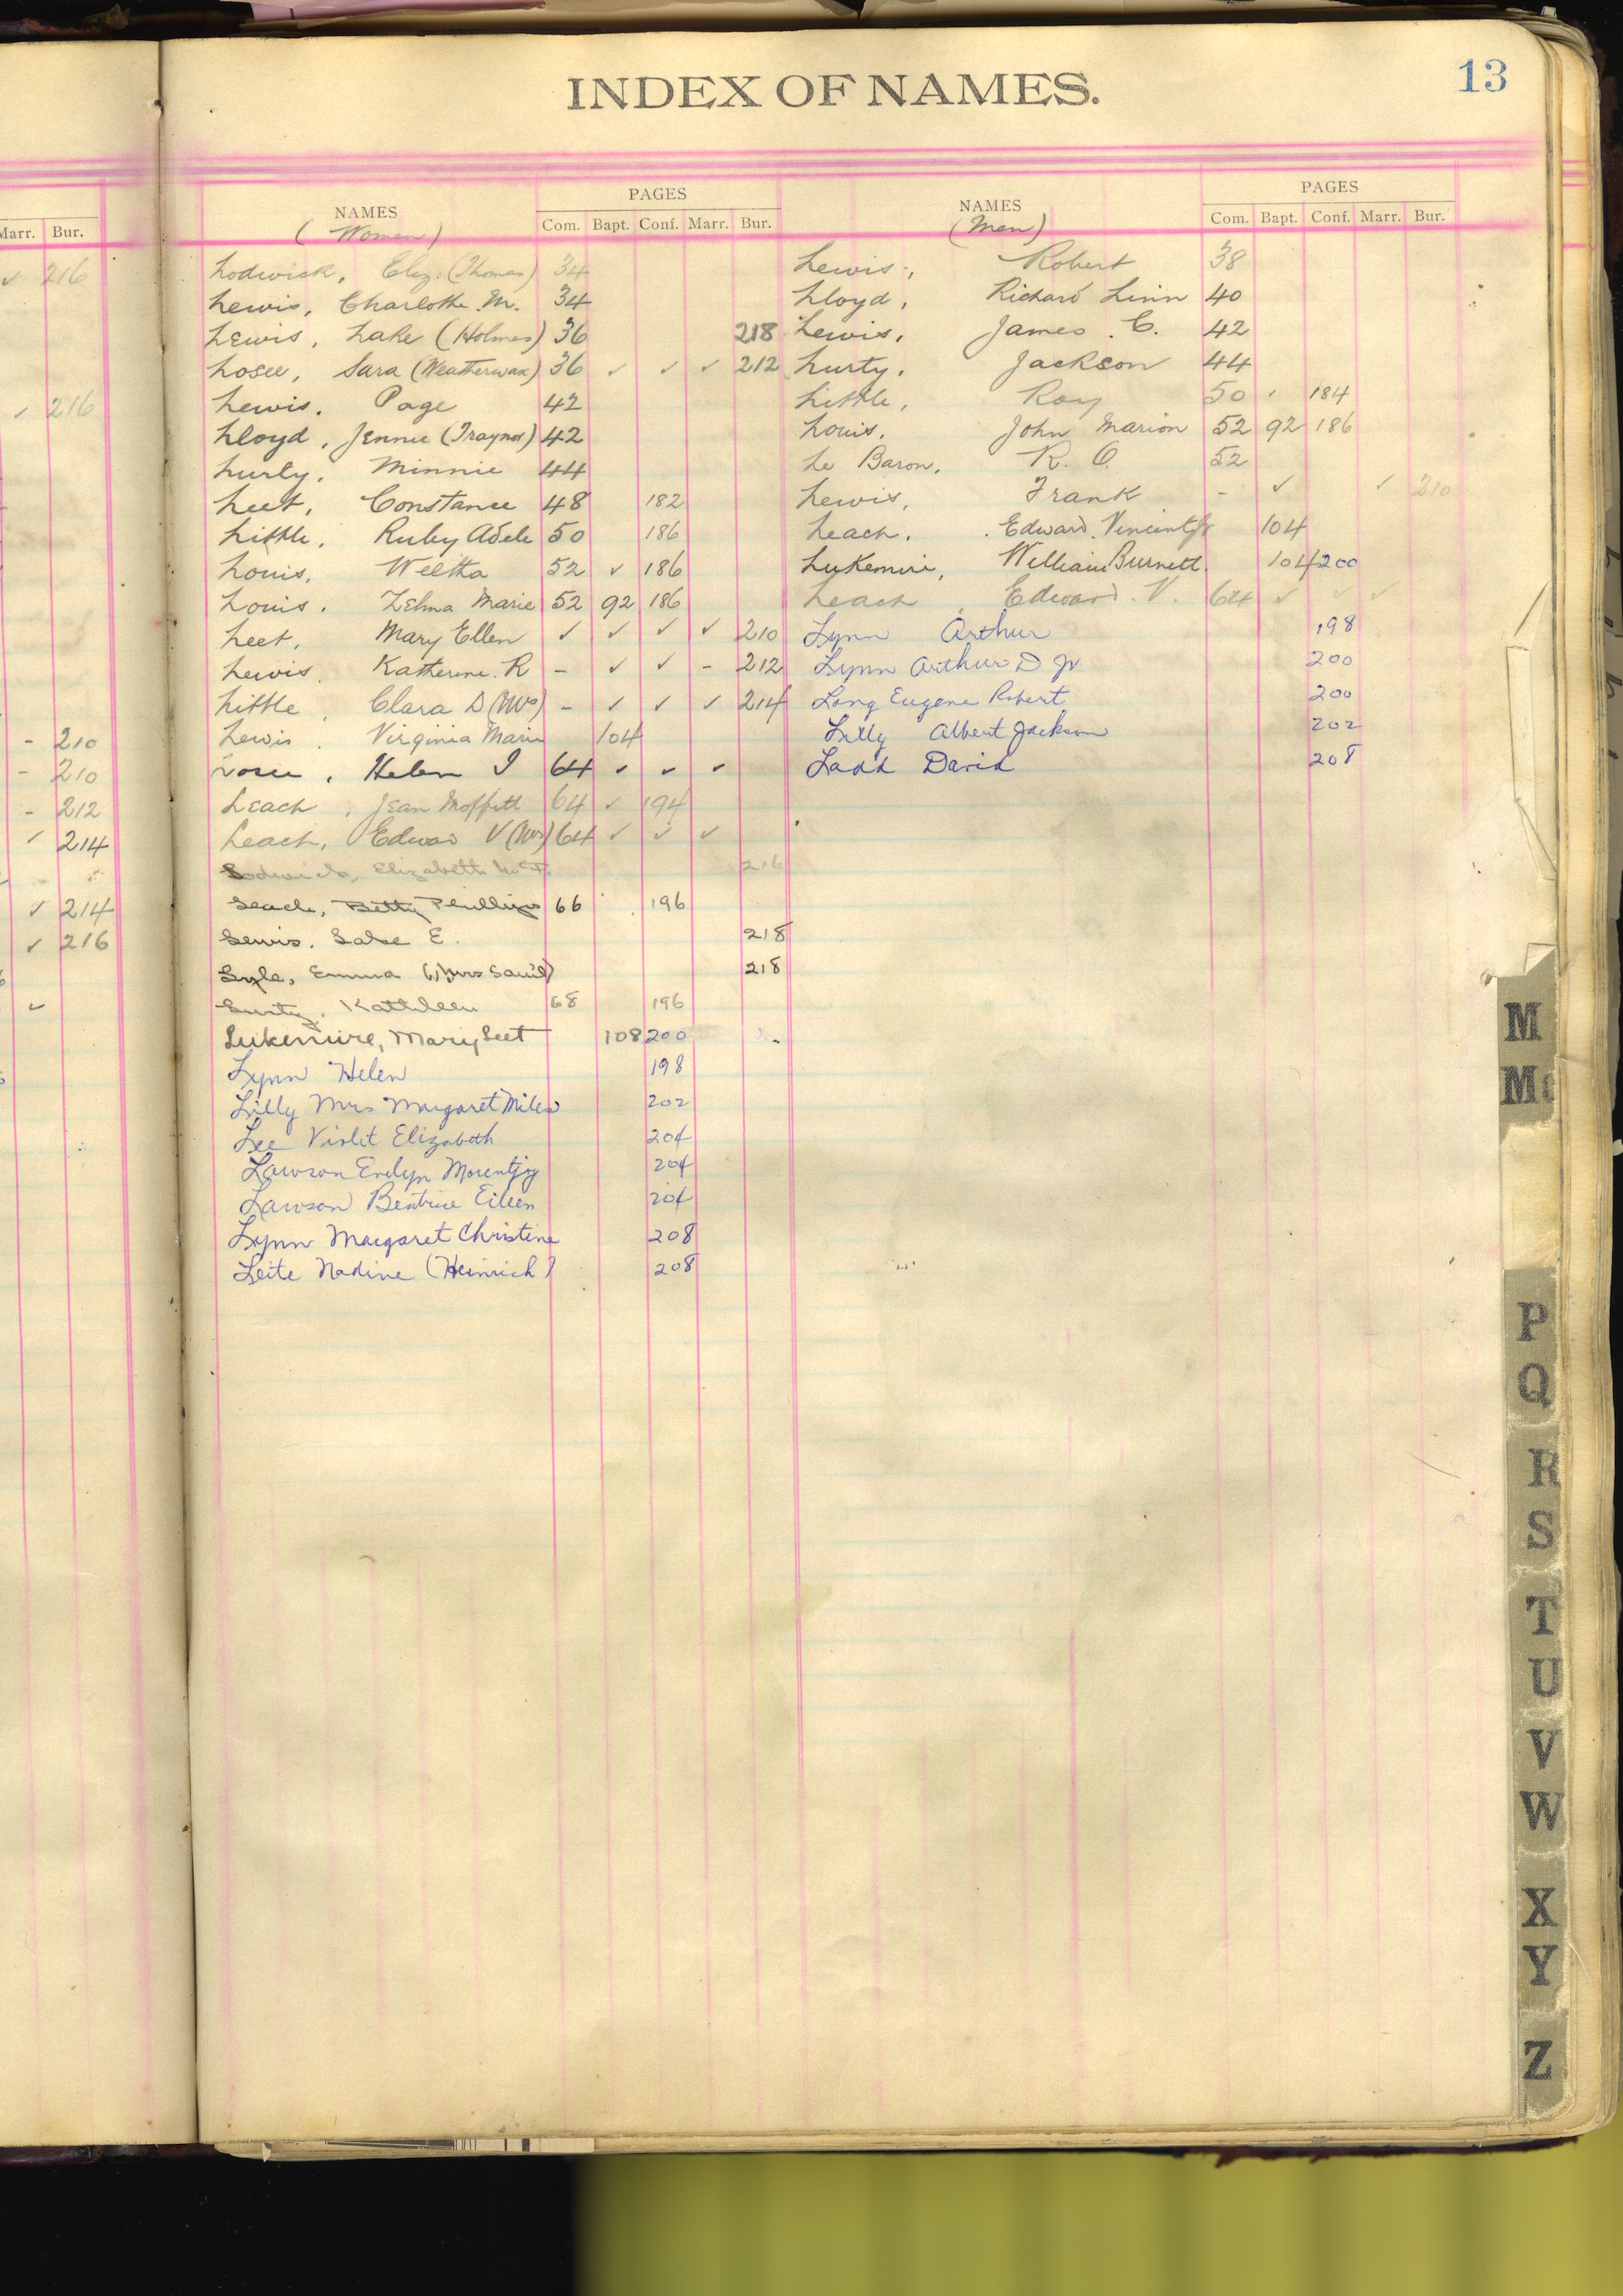 INDEX OF NAMES.
13
Marr. Bur.
✓ 216
✓ 216
- 210
- 210
- 212
✓ 214
✓ 214
✓ 216
✓
NAMES
(Women)
PAGES
Com. Bapt. Conf. Marr. Bur.
Lodwick, Eliz. (Thomas) 34
Lewis, Charlotte M. 34
Lewis, Lake (Holmes) 36 218
Losee, Sara (Weatherwax) 36 ✓ ✓ ✓ 212
Lewis. Page 42
Lloyd, Jennie (Traynor) 42
Lurty, Minnie 44
Leet, Constance 48 182
Little, Ruby Adele 50 186
Louis, Weltha 52 ✓ 186
Louis, Zelma Marie 52 92 186
Leet, Mary Ellen ✓ ✓ ✓ ✓ 210
Lewis, Katherine. R - ✓ ✓ - 212
Little, Clara D (Mrs) - ✓ ✓ ✓ 214
Lewis, Virginia Marie 104
Losee, Helen I 64 ✓ ✓ ✓
Leach, Jean Moffett 64 ✓ 194
Leach, Edward V (Mrs) 64 ✓ ✓ ✓
Lodwick, Elizabeth 216
Leach, Betty Phillips 66 196
Lewis. Lake E. 218
Lyle, Emma (Mrs Sam'l) 218
Lurty, Kathleen 68 196
Lukemire, Mary Leet 108 200
Lynn Helen 198
Lilly Mrs Margaret Miles 202
Lee Violet Elizabeth 204
Lawson Evelyn 204
Lawson Beatrice Eileen 204
Lynn Margaret Christine 208
Leite Nadine (Heinrich) 208
NAMES
(Men)
PAGES
Com. Bapt. Conf. Marr. Bur.
Lewis, Robert 38
Lloyd, Richard Linn 40
Lewis, James C. 42
Lurty, Jackson 44
Little, Roy 50 ✓ 184
Louis, John Marion 52 92 186
Le Baron, R. O. 52
Lewis, Frank - ✓ ✓ 210
Leach, Edward Vincent Jr 104
Lukemire, William Burnett 104 200
Leach, Edward. V. 64 ✓ ✓ ✓
Lynn Arthur 198
Lynn Arthur D Jr 200
Long Eugene Robert 200
Lilly Albert Jackson 202
Ladd David 208
M
Mc
P
Q
R
S
T
U
V
W
X
Y
Z